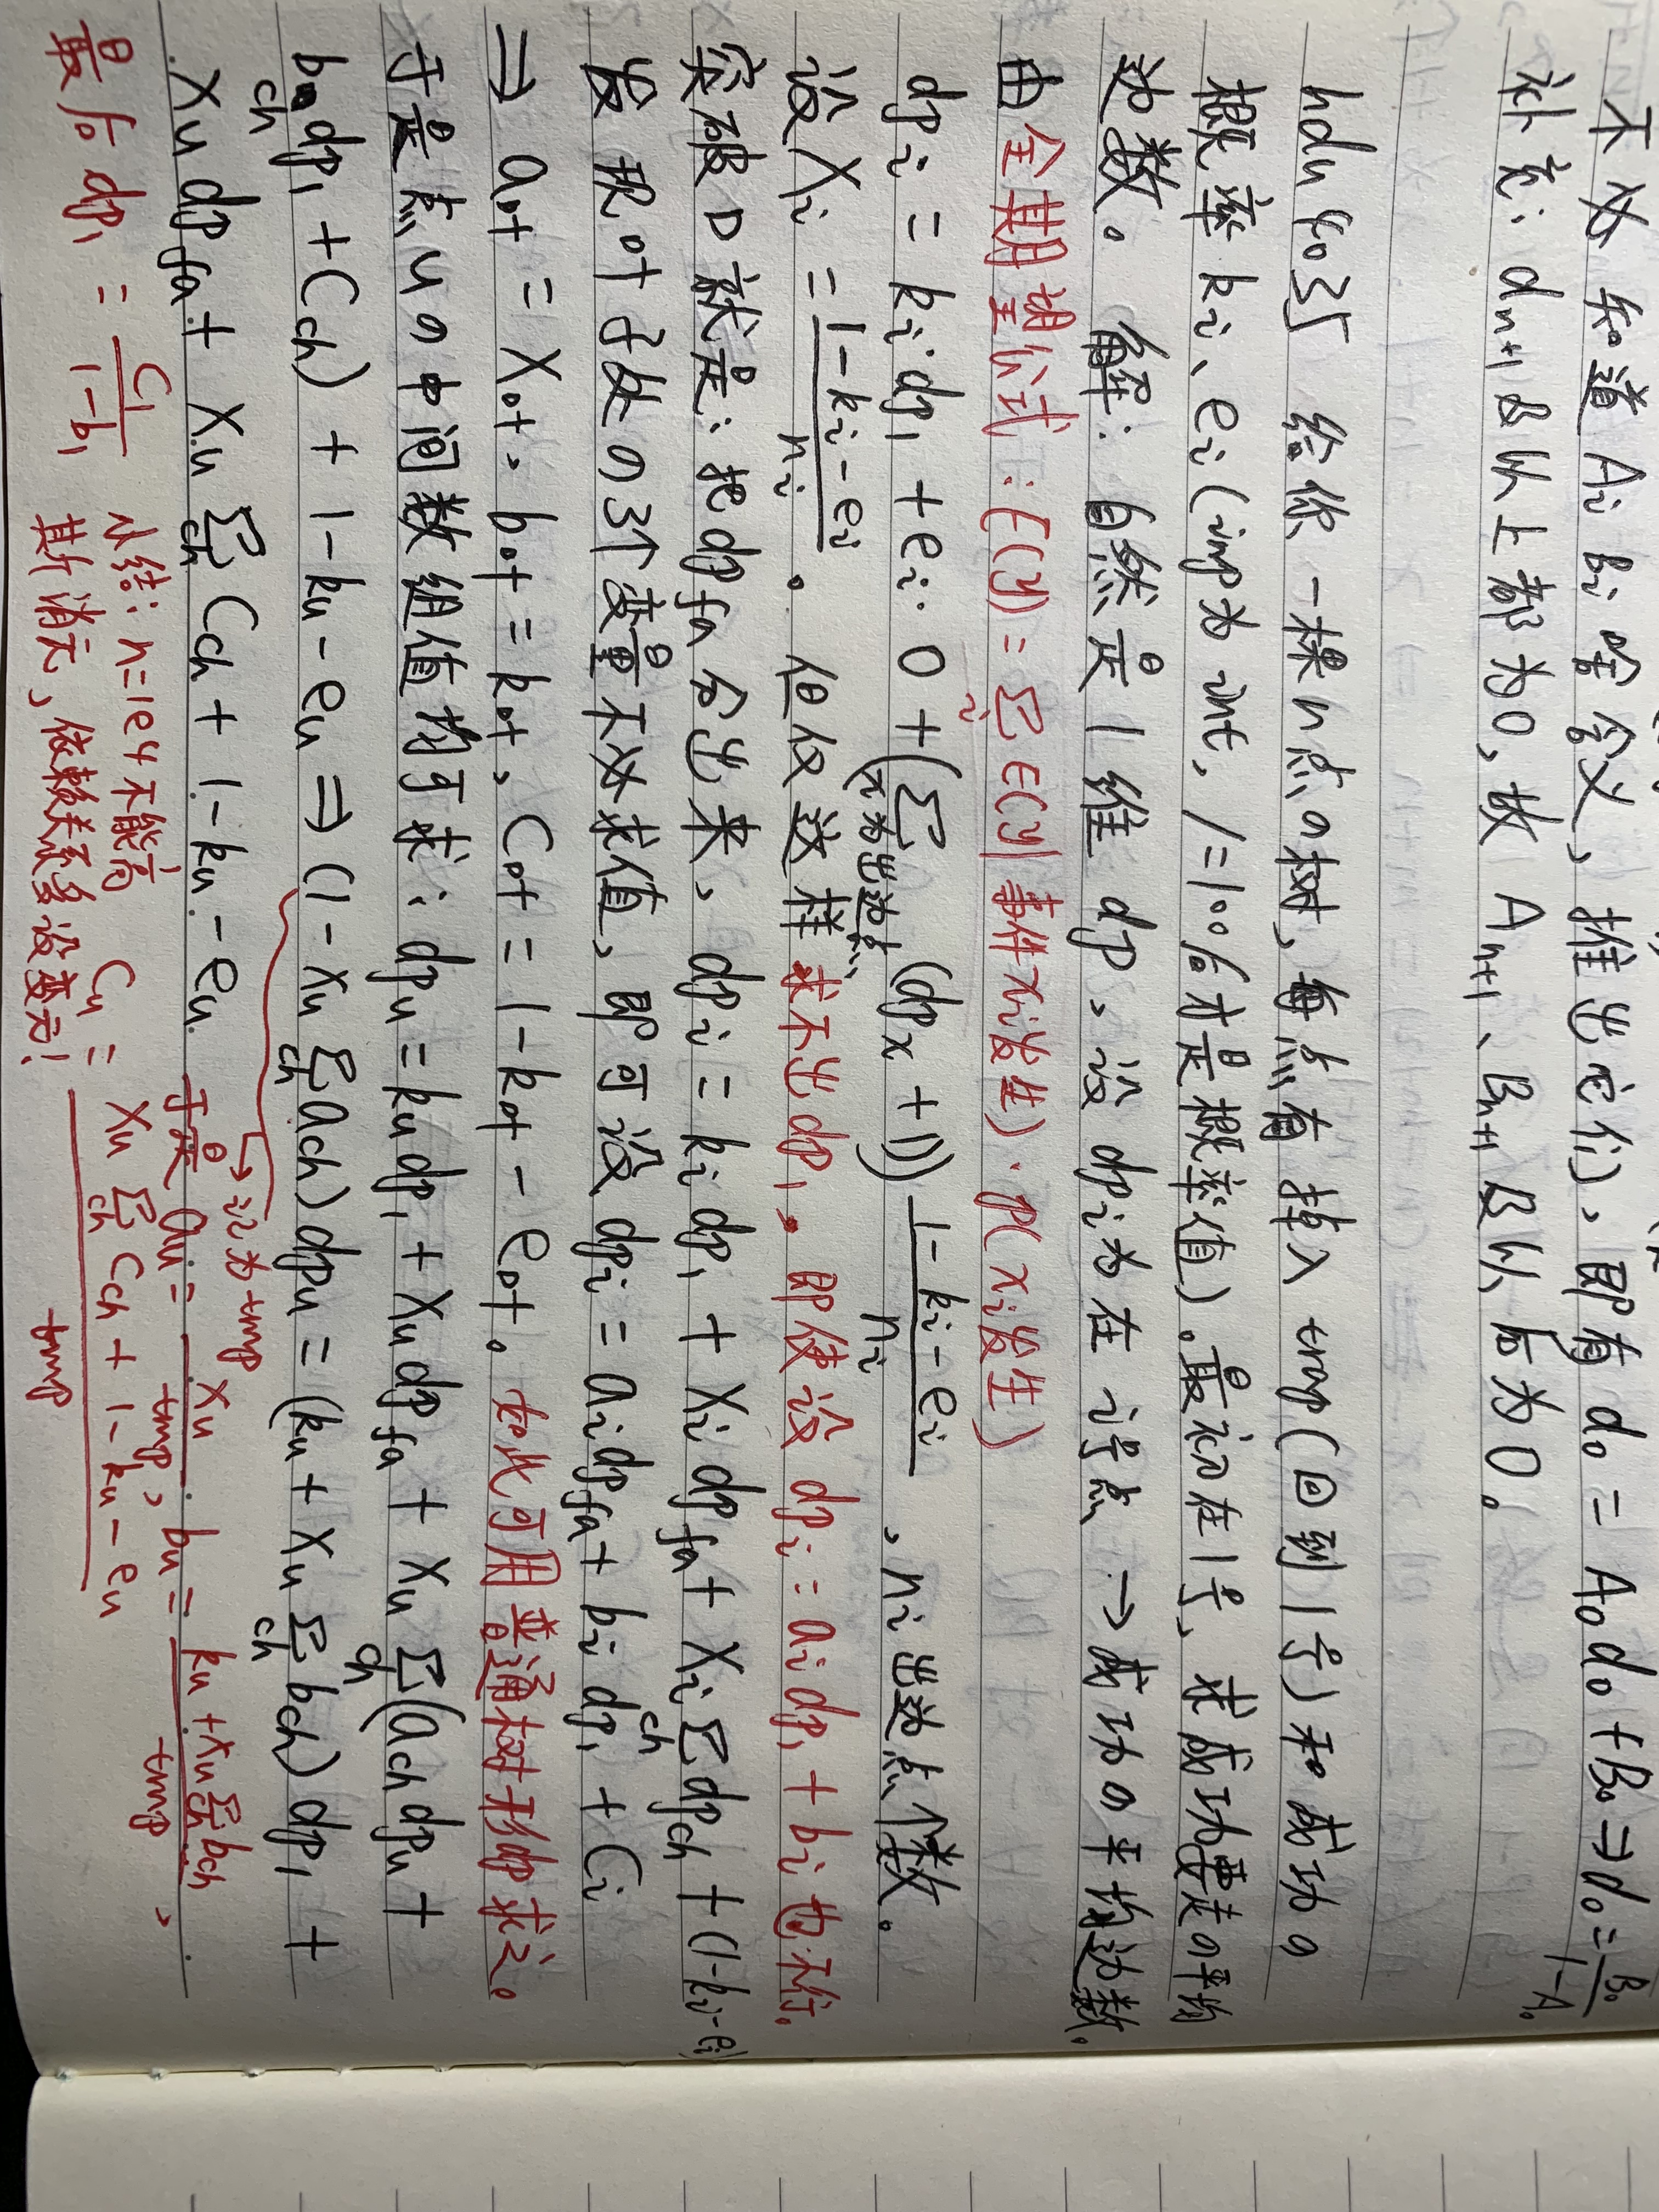 不必知道 Ai Bi 啥含义, 推出它们, 即有 d₀ = A₀d₀+B₀ ⇒ d₀ = B₀/(1-A₀)
补充: dₙ₊₁ 及以上都为0, 故 Aₙ₊₁、Bₙ₊₁ 及以后为0。
hdu 4035 给你一棵 n 点の树, 每点有掉入 trap (回到1号) 和成功の
概率 ki、ei (inp为int, /=100后才是概率值)。最初在1号, 求成功要走の平均
边数。 解: 自然是1维dp, 设 dpi 为在i号点→成功の平均边数。
由全期望公式: E(y) = Σᵢ E(y|事件xi发生)·p(xi发生)
dpi = ki·dp₁ + ei·0 + (Σ_{x为出边点} (dpx+1)) (1-ki-ei)/ni , ni出边点个数。
设 Xi = (1-ki-ei)/ni 。但仅这样求不出dp₁。即使设 dpi = ai dp₁ + bi 也不行。
突破口就是: 把dp_fa分出来, dpi = ki dp₁ + Xi dp_fa + Xi Σ_ch dp_ch + (1-ki-ei)
发现叶子处の3个变量不必求值, 即可设 dpi = ai dp_fa + bi dp₁ + Ci
⇒ a叶 = X叶, b叶 = k叶, C叶 = 1-k叶-e叶。 如此可用普通树形dp求之。
于是点uの中间数组值均可求: dpu = ku dp₁ + Xu dp_fa + Xu Σ_ch (a_ch dpu +
b_ch dp₁ + C_ch) + 1-ku-eu ⇒ (1-Xu Σ_ch a_ch) dpu = (ku + Xu Σ_ch b_ch) dp₁ +
↳ 记为tmp
Xu dp_fa + Xu Σ_ch C_ch + 1-ku-eu. 于是 au = Xu/tmp, bu = (ku+Xu Σ_ch b_ch)/tmp,
Cu = (Xu Σ_ch C_ch + 1-ku-eu)/tmp
最后 dp₁ = C₁/(1-b₁)
小结: n=1e4不能高
斯消元, 依赖关系多设变元!